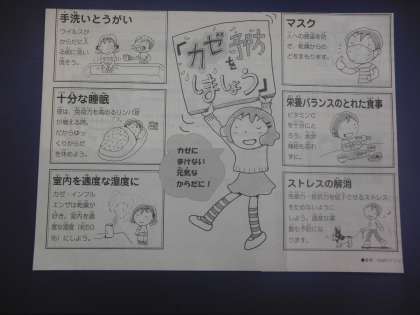 手洗いとうがい
ウイルスが
からだに入
る前に洗い
流そう。
十分な睡眠
夜は、免疫力を高めるリンパ球
が増える時。
だからゆっ
くりからだ
を休めよう。
室内を適度な湿度に
カゼ・インフル
エンザは乾燥が
好き。室内を適
度な湿度(約60
%)にしよう。
「カゼ予防
を
しましょう」
カゼに
まけない
元気な
からだに!
マスク
人への感染を防
ぎ、乾燥からの
どをまもります。
栄養バランスのとれた食事
ビタミンC
を十分にと
ろう。水分
補給も忘れ
ずに。
ストレスの解消
免疫力・抵抗力を低下させるストレス
をためないように
しよう。適度な運
動も予防にな
ります。